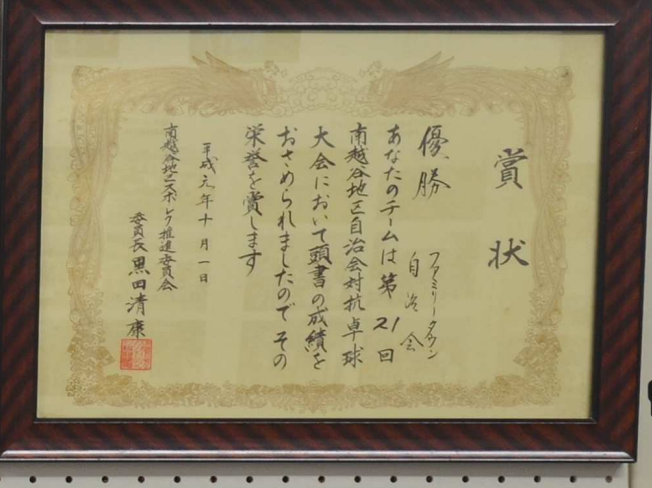 賞状
優勝
ファミリータウン
自治会
あなたのチームは第21回
南越谷地区自治会対抗卓球
大会において頭書の成績を
おさめられましたのでその
栄誉を賞します
平成元年十月一日
南越谷地区スポレク推進委員会
委員長 黒田清康